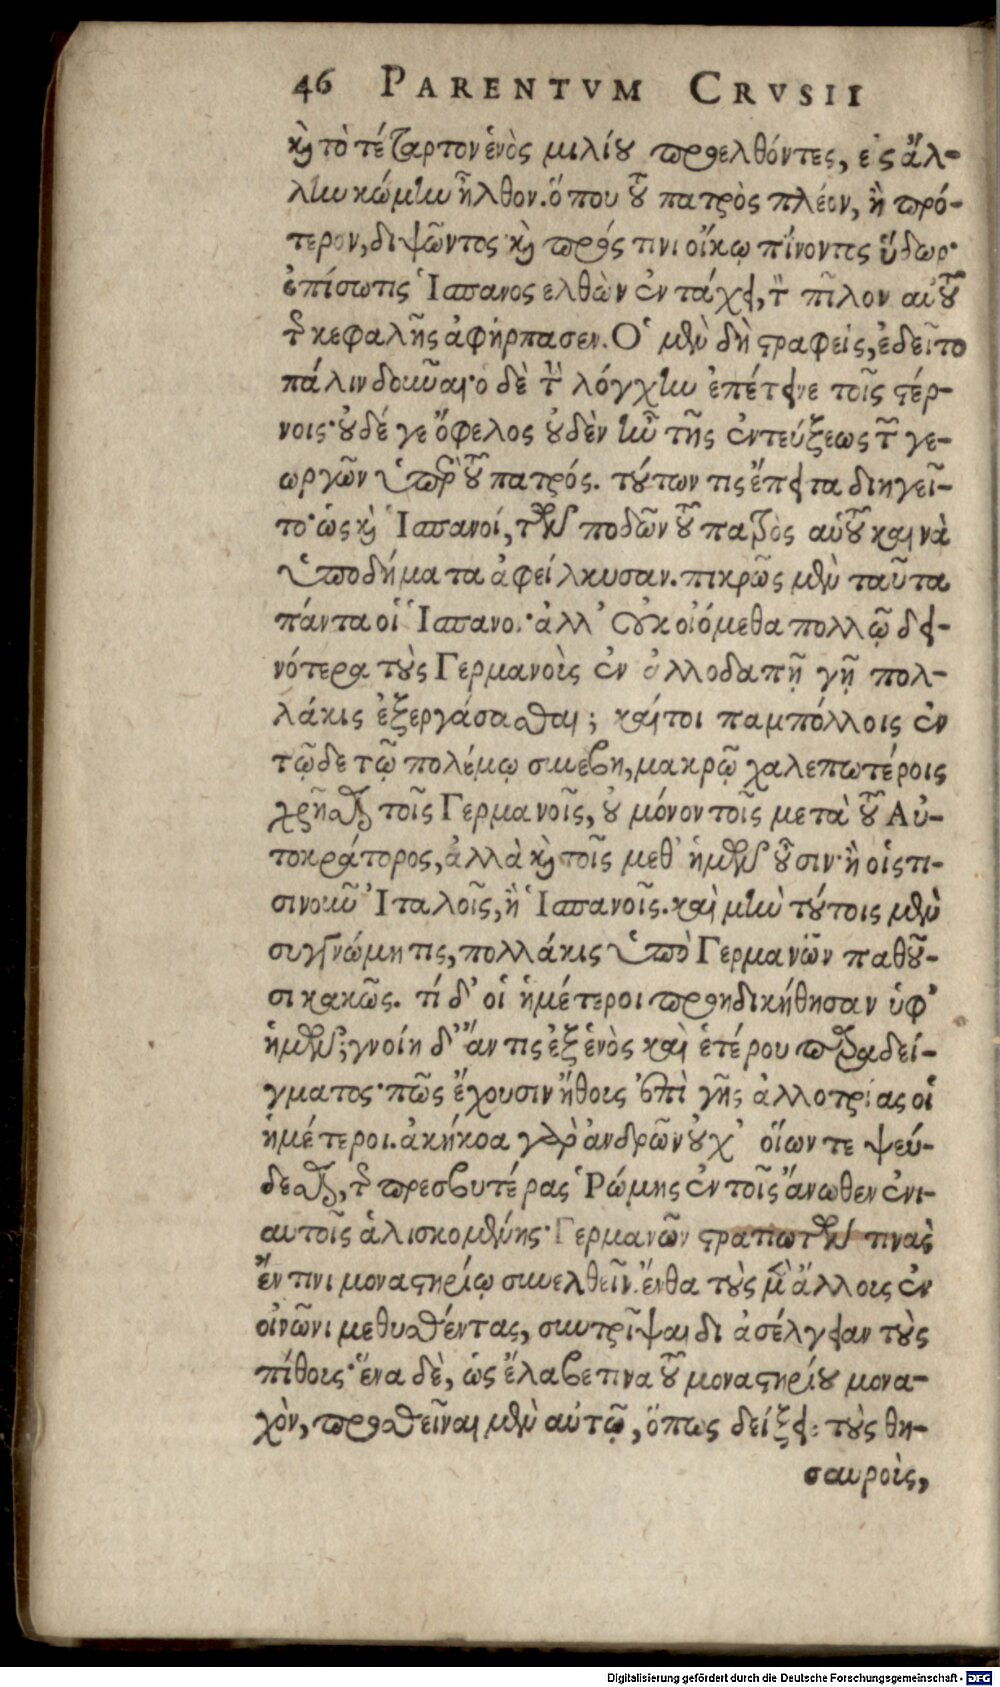 46 PARENTVM CRVSII
καὶ τὸ τέταρτον ἑνὸς μιλίου προελθόντες, εἰς ἄλ-
λην κώμην ἦλθον. ὅπου τοῦ πατρὸς πλέον, ἢ πρό-
τερον, διψῶντος καὶ πρός τινι οἴκῳ πίνοντος ὕδωρ·
ἐπίσωτις Ἱσπανος ελθὼν ἐν τάχει, τὸν πῖλον αὐτοῦ
τῆς κεφαλῆς ἀφήρπασεν. Ὁ μὲν δὴ στραφεὶς, ἐδεῖτο
πάλιν δοῦναι· ὁ δὲ τὴν λόγχην ἐπέτεινε τοῖς στέρ-
νοις· οὐδέ γε ὄφελος οὐδὲν ἦν τῆς ἐντεύξεως τῶν γε-
ωργῶν ὑπὲρ τοῦ πατρός. τούτων τις ἔπειτα διηγεῖ-
το· ὡς καὶ Ἱσπανοί, τῶν ποδῶν τοῦ παιδὸς αὐτοῦ καινὰ
ὑποδήματα ἀφείλκυσαν. πικρῶς μὲν ταῦτα
πάντα οἱ Ἱσπανοί· ἀλλ' οὐκ οἰόμεθα πολλῷ δει-
νότερα τοὺς Γερμανοὺς ἐν ἀλλοδαπῇ γῇ πολ-
λάκις ἐξεργάσασθαι; καίτοι παμπόλλοις ἐν
τῷδε τῷ πολέμῳ συνέβη, μακρῷ χαλεπωτέροις
χρῆσθαι τοῖς Γερμανοῖς, οὐ μόνον τοῖς μετὰ τοῦ Αὐ-
τοκράτορος, ἀλλὰ καὶ τοῖς μεθ' ἡμῶν οὖσιν· ἢ οἷς τι-
σινοῦν Ἰταλοῖς, ἢ Ἱσπανοῖς. καὶ μὴν τούτοις μὲν
συγγνώμη τις, πολλάκις ὑπὸ Γερμανῶν παθοῦ-
σι κακῶς. τί δ' οἱ ἡμέτεροι προηδικήθησαν ὑφ'
ἡμῶν; γνοίη δ' ἄν τις ἐξ ἑνὸς καὶ ἑτέρου παραδεί-
γματος· πῶς ἔχουσιν ἤθους ἐπὶ γῆς ἀλλοτρίας οἱ
ἡμέτεροι. ἀκήκοα γὰρ ἀνδρῶν οὐχ' οἵων τε ψεύ-
δεσθαι, τῆς πρεσβυτέρας Ῥώμης ἐν τοῖς ἄνωθεν ἐνι-
αυτοῖς ἁλισκομένης· Γερμανῶν στρατιωτῶν τινὰς
ἔν τινι μοναστηρίῳ συνελθεῖν. ἔνθα τοὺς μὲν ἄλλους ἐν
οἰνῶνι μεθυσθέντας, συντρῖψαι δι ἀσέλγειαν τοὺς
πίθους· ἕνα δὲ, ὡς ἔλαβε τινα τοῦ μοναστηρίου μονα-
χὸν, προσθεῖναι μὲν αὐτῷ, ὅπως δείξει τοὺς θη-
σαυροὺς,
Digitalisierung gefördert durch die Deutsche Forschungsgemeinschaft - DFG